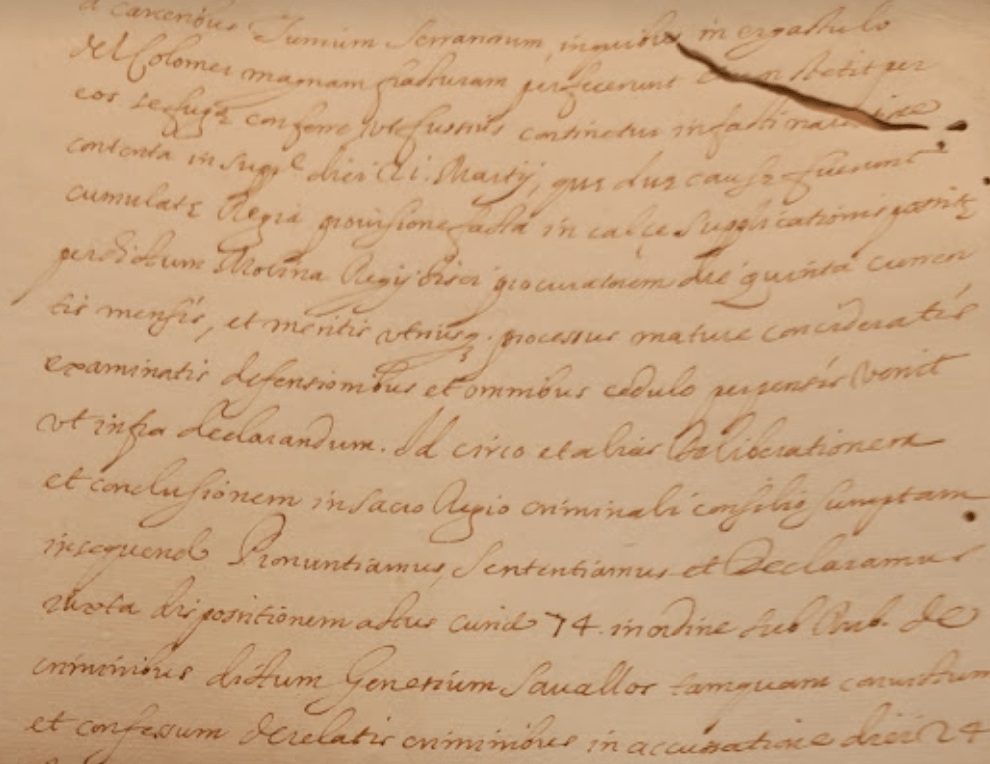 a carceribus Turrium Serranorum, inquibus in ergastulo
del Colomer magnam fracturam perfecerunt stetit per
eos se fugę conferre, vt fussius continetur in facti narratiōe
contenta in suppᵉ diei xi. Martij, que duę causę fuerunt
cumulatę Regia provisione facta in calçe supplicationis positę
per dictum Molina Regij fisci procuratorem die quinta curren
tis mensis, et meritis vtriusq. processus mature concideratis
examinatis defensionibus et omnibus cedulo perpensis venit
vt infra declarandum. Id circo et alias deliberationem
et conclusionem in sacro Regio criminali consilio sumptam
insequendo Pronuntiamus, Sententiamus et Declaramus
iuxta dispositionem actus curię 74. in ordine sub Rub. de
criminibus dictum Genesium Savallos tamquam convictum
et confessum de relatis criminibus in accusatione diei 24